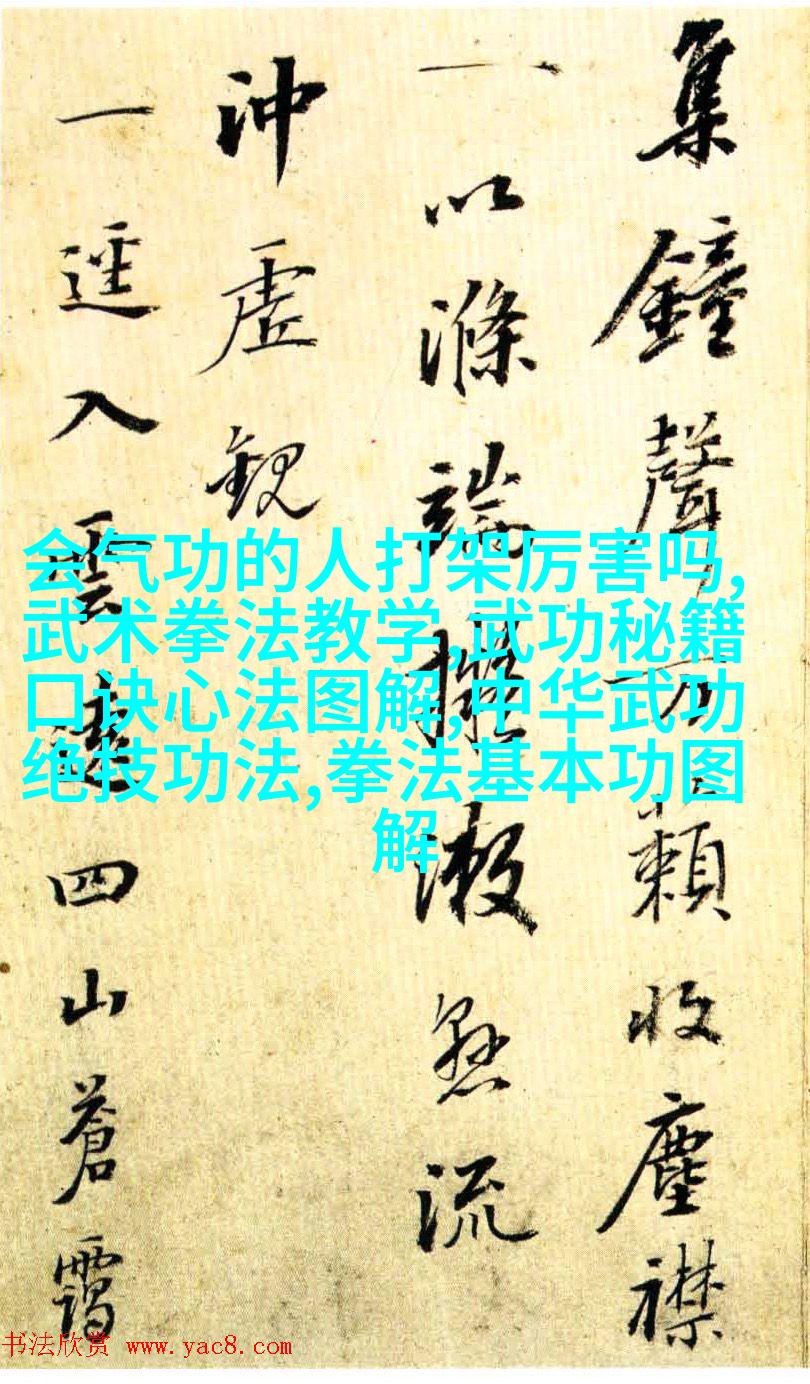 集鐘聲万籟收塵襟
一以滌端擬漱懸流
沖虛觀
一逕入雲四山蒼靄
会气功的人打架厉害吗,
武术拳法教学,武功秘籍
口诀心法图解,中华武功
绝技功法,拳法基本功图
解
书法欣赏 www.yac8.com